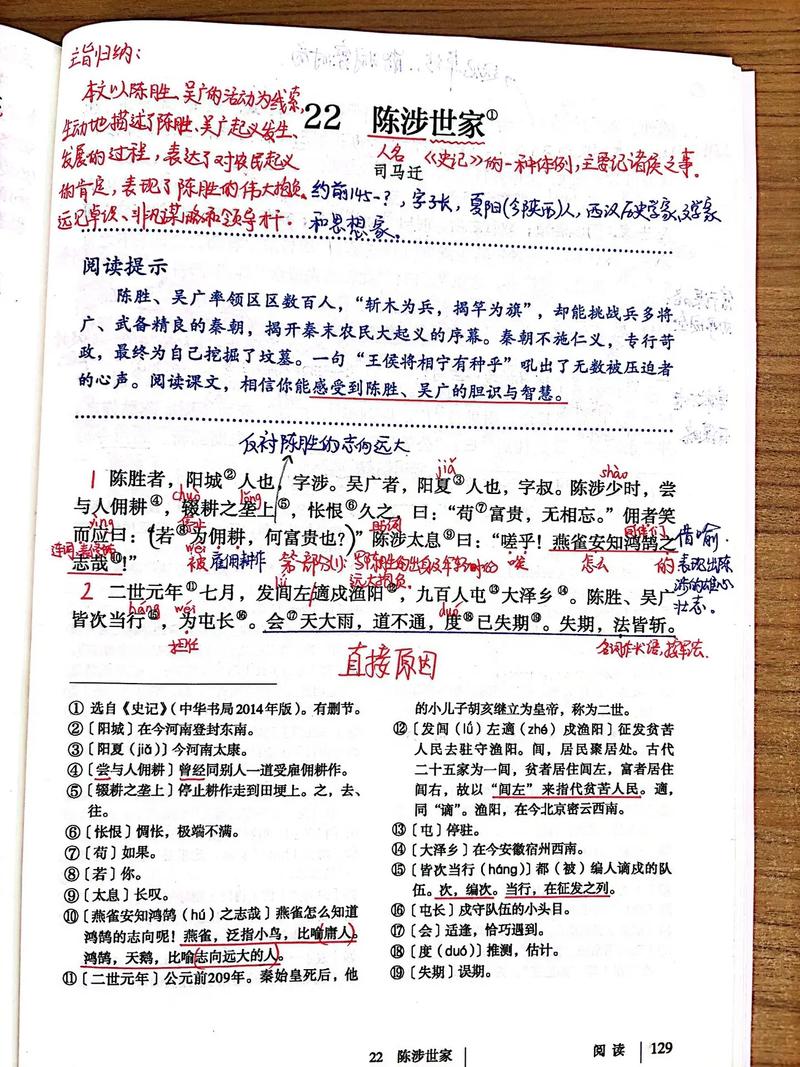 主旨归纳：
本文以陈胜、吴广的活动为线索，
生动地描述了陈胜、吴广起义发生、
发展的过程，表达了对农民起义
的肯定，表现了陈胜的伟大抱负、
远见卓识、非凡谋略和领导才干。
22 陈涉世家①
人名 《史记》的一种体例，主要记诸侯之事。
司马迁
约前145-？，字子长，夏阳(今陕西)人，西汉历史学家，文学家
和思想家。
阅读提示
陈胜、吴广率领区区数百人，“斩木为兵，揭竿为旗”，却能挑战兵多将
广、武备精良的秦朝，揭开秦末农民大起义的序幕。秦朝不施仁义，专行苛
政，最终为自己挖掘了坟墓。一句“王侯将相宁有种乎”吼出了无数被压迫者
的心声。阅读课文，相信你能感受到陈胜、吴广的胆识与智慧。
反衬陈胜的志向远大
jiǎ shào
1 陈胜者，阳城②人也，字涉。吴广者，阳夏③人也，字叔。陈涉少时，尝
chuò lǒng
与人佣耕④，辍耕之垄上⑤，怅恨⑥久之，曰：“苟⑦富贵，无相忘。”佣者笑
yìng 停止 助词 同伴们
而应曰：“若⑧为佣耕，何富贵也？”陈涉太息⑨曰：“嗟乎！燕雀安知鸿鹄之
借喻，
表现出陈
涉的雄心
壮志。
被 雇佣耕作 第一部分(1)：写陈胜的出身及年轻时的 唉 怎么 的
远大抱负。
志哉⑩！”
2 二世元年⑪七月，发闾左適戍渔阳⑫，九百人屯⑬大泽乡⑭。陈胜、吴广
lǘ
háng wéi duó
皆次当行⑮，为屯长⑯。会⑰天大雨，道不通，度⑱已失期⑲。失期，法皆斩。
担任
直接原因
名词作状语，按军法
① 选自《史记》（中华书局2014年版）。有删节。
② 〔阳城〕在今河南登封东南。
③ 〔阳夏（jiǎ）〕今河南太康。
④ 〔尝与人佣耕〕曾经同别人一道受雇佣耕作。
⑤ 〔辍耕之垄上〕停止耕作走到田埂上。之，去、
往。
⑥ 〔怅恨〕惆怅，极端不满。
⑦ 〔苟〕如果。
⑧ 〔若〕你。
⑨ 〔太息〕长叹。
⑩ 〔燕雀安知鸿鹄（hú）之志哉〕燕雀怎么知道
鸿鹄的志向呢！燕雀，泛指小鸟，比喻庸人。
鸿鹄，天鹅，比喻志向远大的人。
⑪ 〔二世元年〕公元前209年。秦始皇死后，他
的小儿子胡亥继立为皇帝，称为二世。
⑫ 〔发闾（lǘ）左適（zhé）戍渔阳〕征发贫苦
人民去驻守渔阳。闾，居民聚居处。古代
二十五家为一闾，贫者居住闾左，富者居住
闾右，故以“闾左”来指代贫苦人民。適，
同“谪”。渔阳，在今北京密云西南。
⑬ 〔屯〕停驻。
⑭ 〔大泽乡〕在今安徽宿州西南。
⑮ 〔皆次当行（háng）〕都（被）编入谪戍的队
伍。次，编次。当行，在征发之列。
⑯ 〔屯长〕戍守队伍的小头目。
⑰ 〔会〕适逢，恰巧遇到。
⑱ 〔度（duó）〕推测，估计。
⑲ 〔失期〕误期。
22 陈涉世家 阅读 129